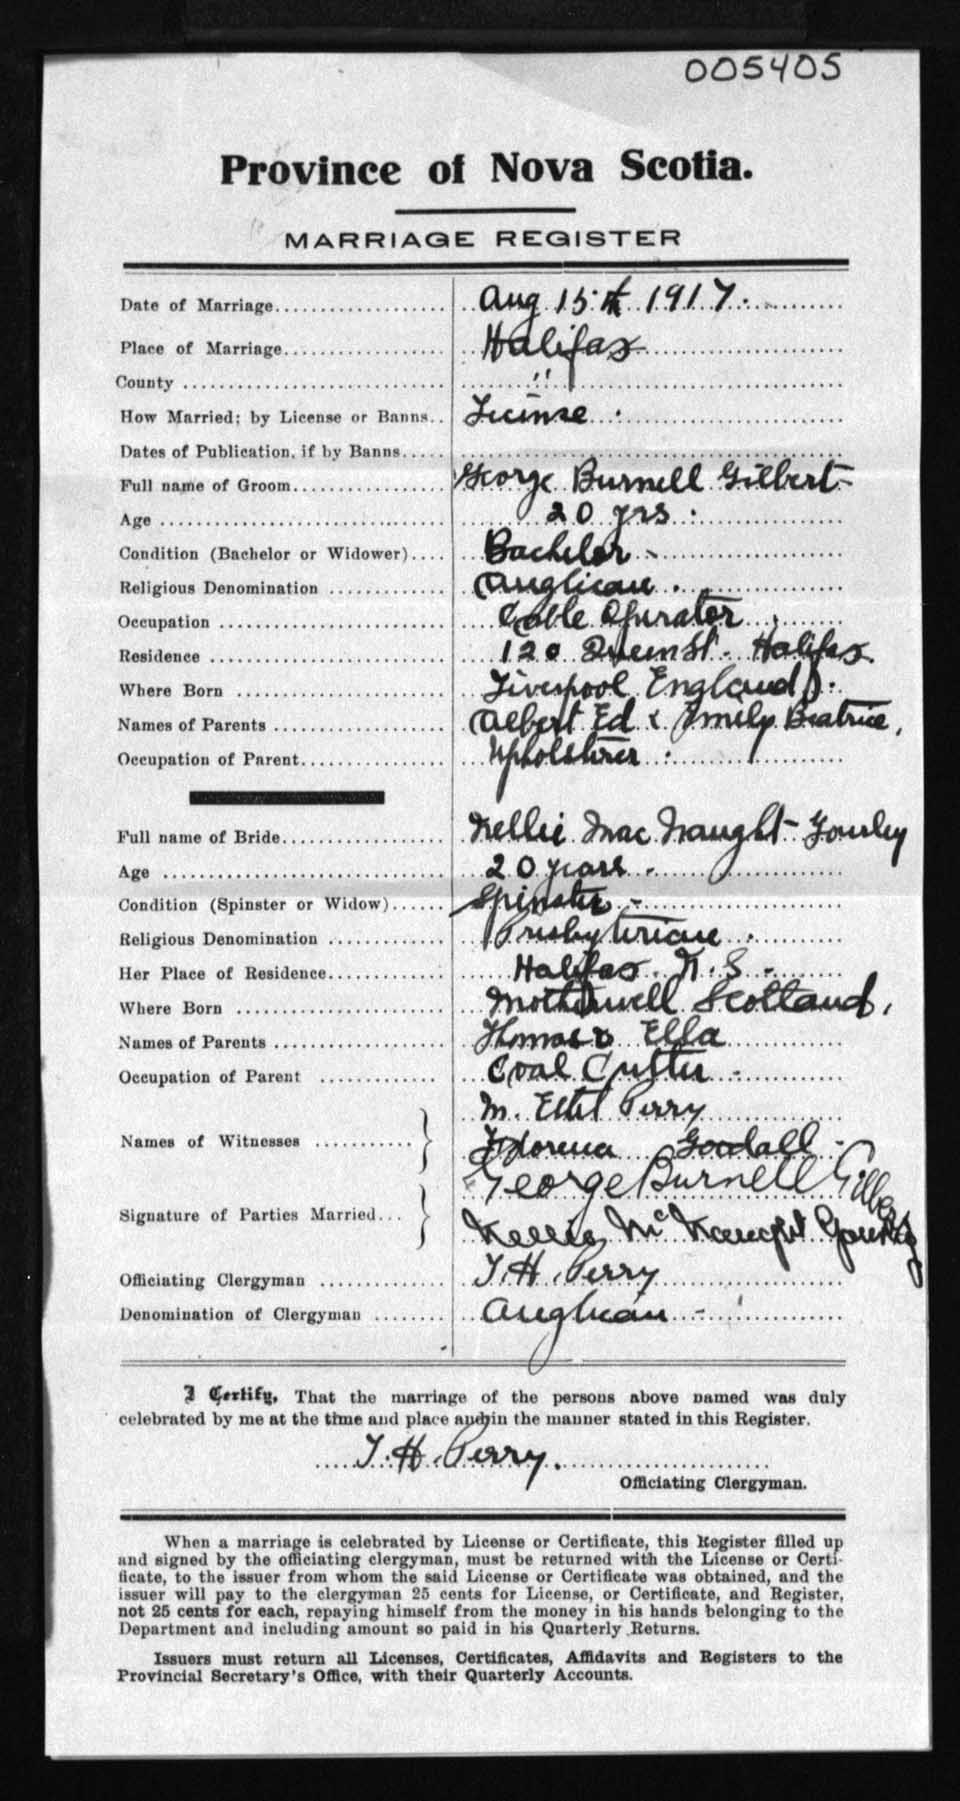 005405
Province of Nova Scotia.
MARRIAGE REGISTER
Date of Marriage Aug 15th 1917.
Place of Marriage Halifax
County "
How Married; by License or Banns License.
Dates of Publication, if by Banns
Full name of Groom George Burnell Gilbert
Age 20 yrs.
Condition (Bachelor or Widower) Bachelor
Religious Denomination Anglican.
Occupation Cable Operator
Residence 120 Queen St. Halifax
Where Born Liverpool England.
Names of Parents Albert Ed & Emily Beatrice,
Occupation of Parent Upholsterer.
Full name of Bride Nellie Mac Naught Gourley
Age 20 years.
Condition (Spinster or Widow) Spinster
Religious Denomination Presbyterian.
Her Place of Residence Halifax. N.S.
Where Born Motherwell Scotland,
Names of Parents Thomas & Ella
Occupation of Parent Coal Cutter
Names of Witnesses M. Ethel Perry
Goodall
Signature of Parties Married George Burnell Gilbert
Nellie McNaught Gourley
Officiating Clergyman T. H. Perry
Denomination of Clergyman Anglican
I Certify, That the marriage of the persons above named was duly
celebrated by me at the time and place and in the manner stated in this Register.
T. H. Perry.
Officiating Clergyman.
When a marriage is celebrated by License or Certificate, this Register filled up
and signed by the officiating clergyman, must be returned with the License or Certi-
ficate, to the issuer from whom the said License or Certificate was obtained, and the
issuer will pay to the clergyman 25 cents for License, or Certificate, and Register,
not 25 cents for each, repaying himself from the money in his hands belonging to the
Department and including amount so paid in his Quarterly Returns.
Issuers must return all Licenses, Certificates, Affidavits and Registers to the
Provincial Secretary's Office, with their Quarterly Accounts.